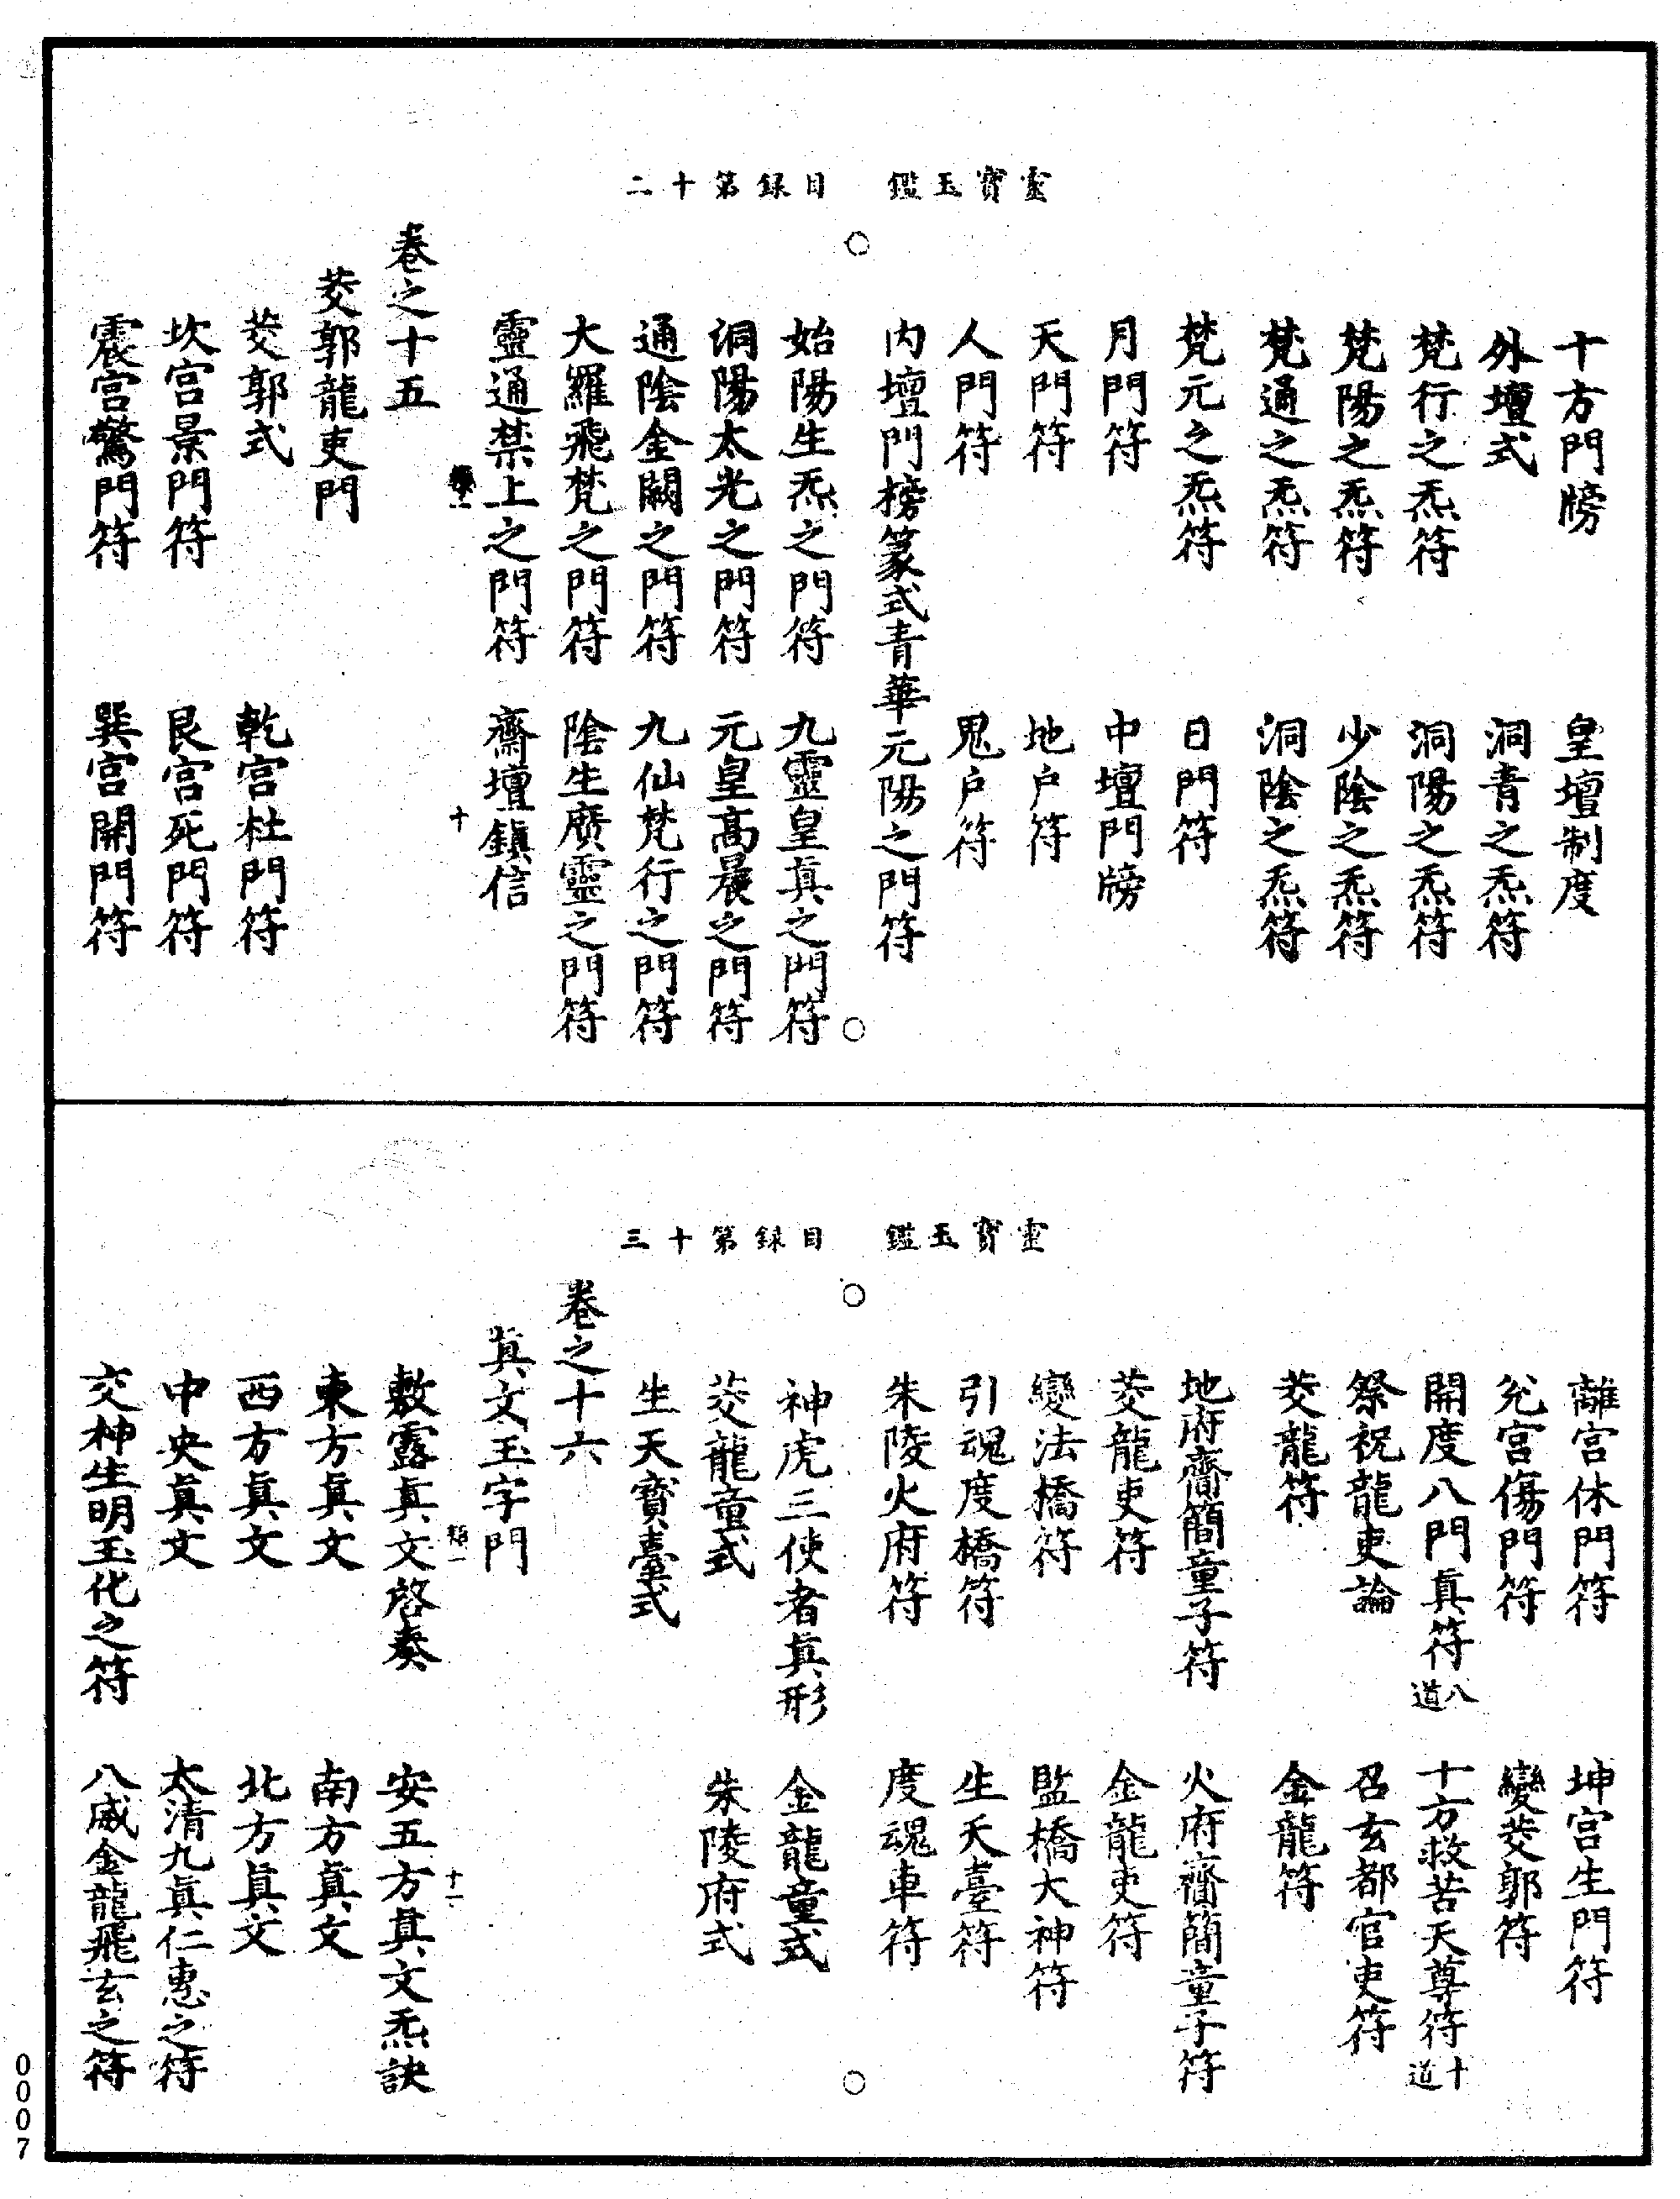 靈寶玉鑑　目錄第十二
十方門牓　皇壇制度
外壇式　洞青之炁符
梵行之炁符　洞陽之炁符
梵陽之炁符　少陰之炁符
梵通之炁符　洞陰之炁符
梵元之炁符　日門符
月門符　中壇門牓
天門符　地户符
人門符　鬼户符
内壇門榜篆式青華元陽之門符
始陽生炁之門符　九靈皇真之門符
洞陽太光之門符　元皇高晨之門符
通陰金闕之門符　九仙梵行之門符
大羅飛梵之門符　陰生廣靈之門符
靈通禁上之門符　齋壇鎮信
十
卷之十五
茭郭龍吏門
茭郭式　乾宫杜門符
坎宫景門符　艮宫死門符
震宫驚門符　巽宫開門符
靈寶玉鑑　目錄第十三
離宫休門符　坤宫生門符
兊宫傷門符　變茭郭符
開度八門真符八道　十方救苦天尊符十道
祭祝龍吏論　召玄都官吏符
茭龍符　金龍符
地府齎簡童子符　火府齎簡童子符
茭龍吏符　金龍吏符
變法橋符　監橋大神符
引魂度橋符　生天臺符
朱陵火府符　度魂車符
神虎三使者真形　金龍童式
茭龍童式　朱陵府式
生天寶臺式
卷之十六
真文玉字門
十一
敷露真文啓奏　安五方真文炁訣
東方真文　南方真文
西方真文　北方真文
中央真文　太清九真仁惠之符
交神生明玉化之符　八威金龍飛玄之符
0007